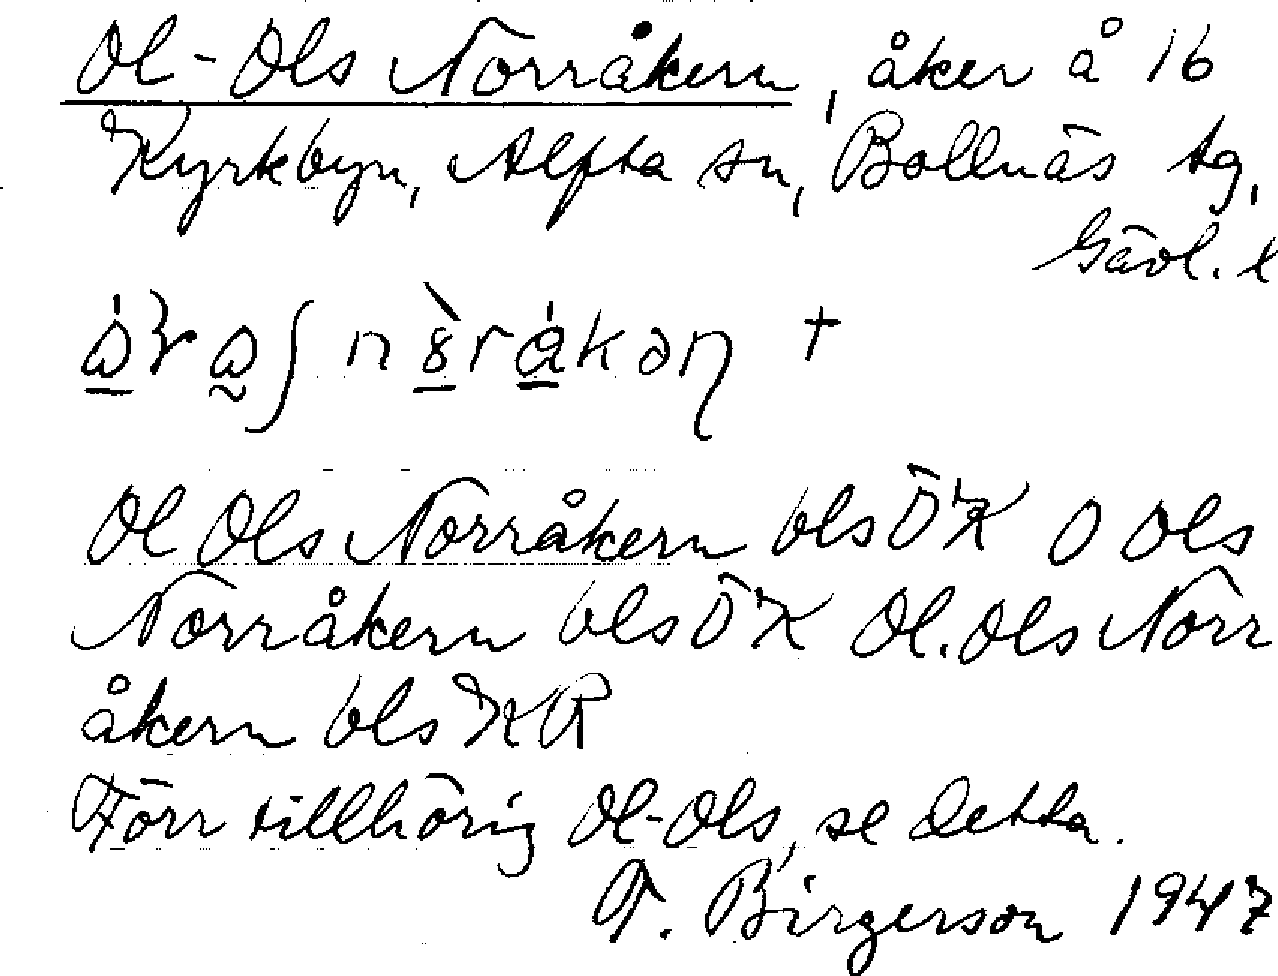 Ol-Ols Norråkern, åker å 16
Kyrkbyn, Alfta sn, Bollnäs tg,
Gävl. l
Ol Ols Norråkern bls ÖK O Ols
Norråkern bls ÖK Ol. Ols Norr
åkern bls KR
Förr tillhörig Ol-Ols, se detta.
T. Birgerson 1947